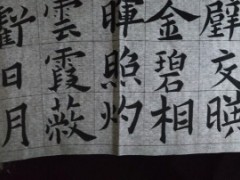 璧交暎
金碧相
暉照灼
雲霞蔽
虧日月